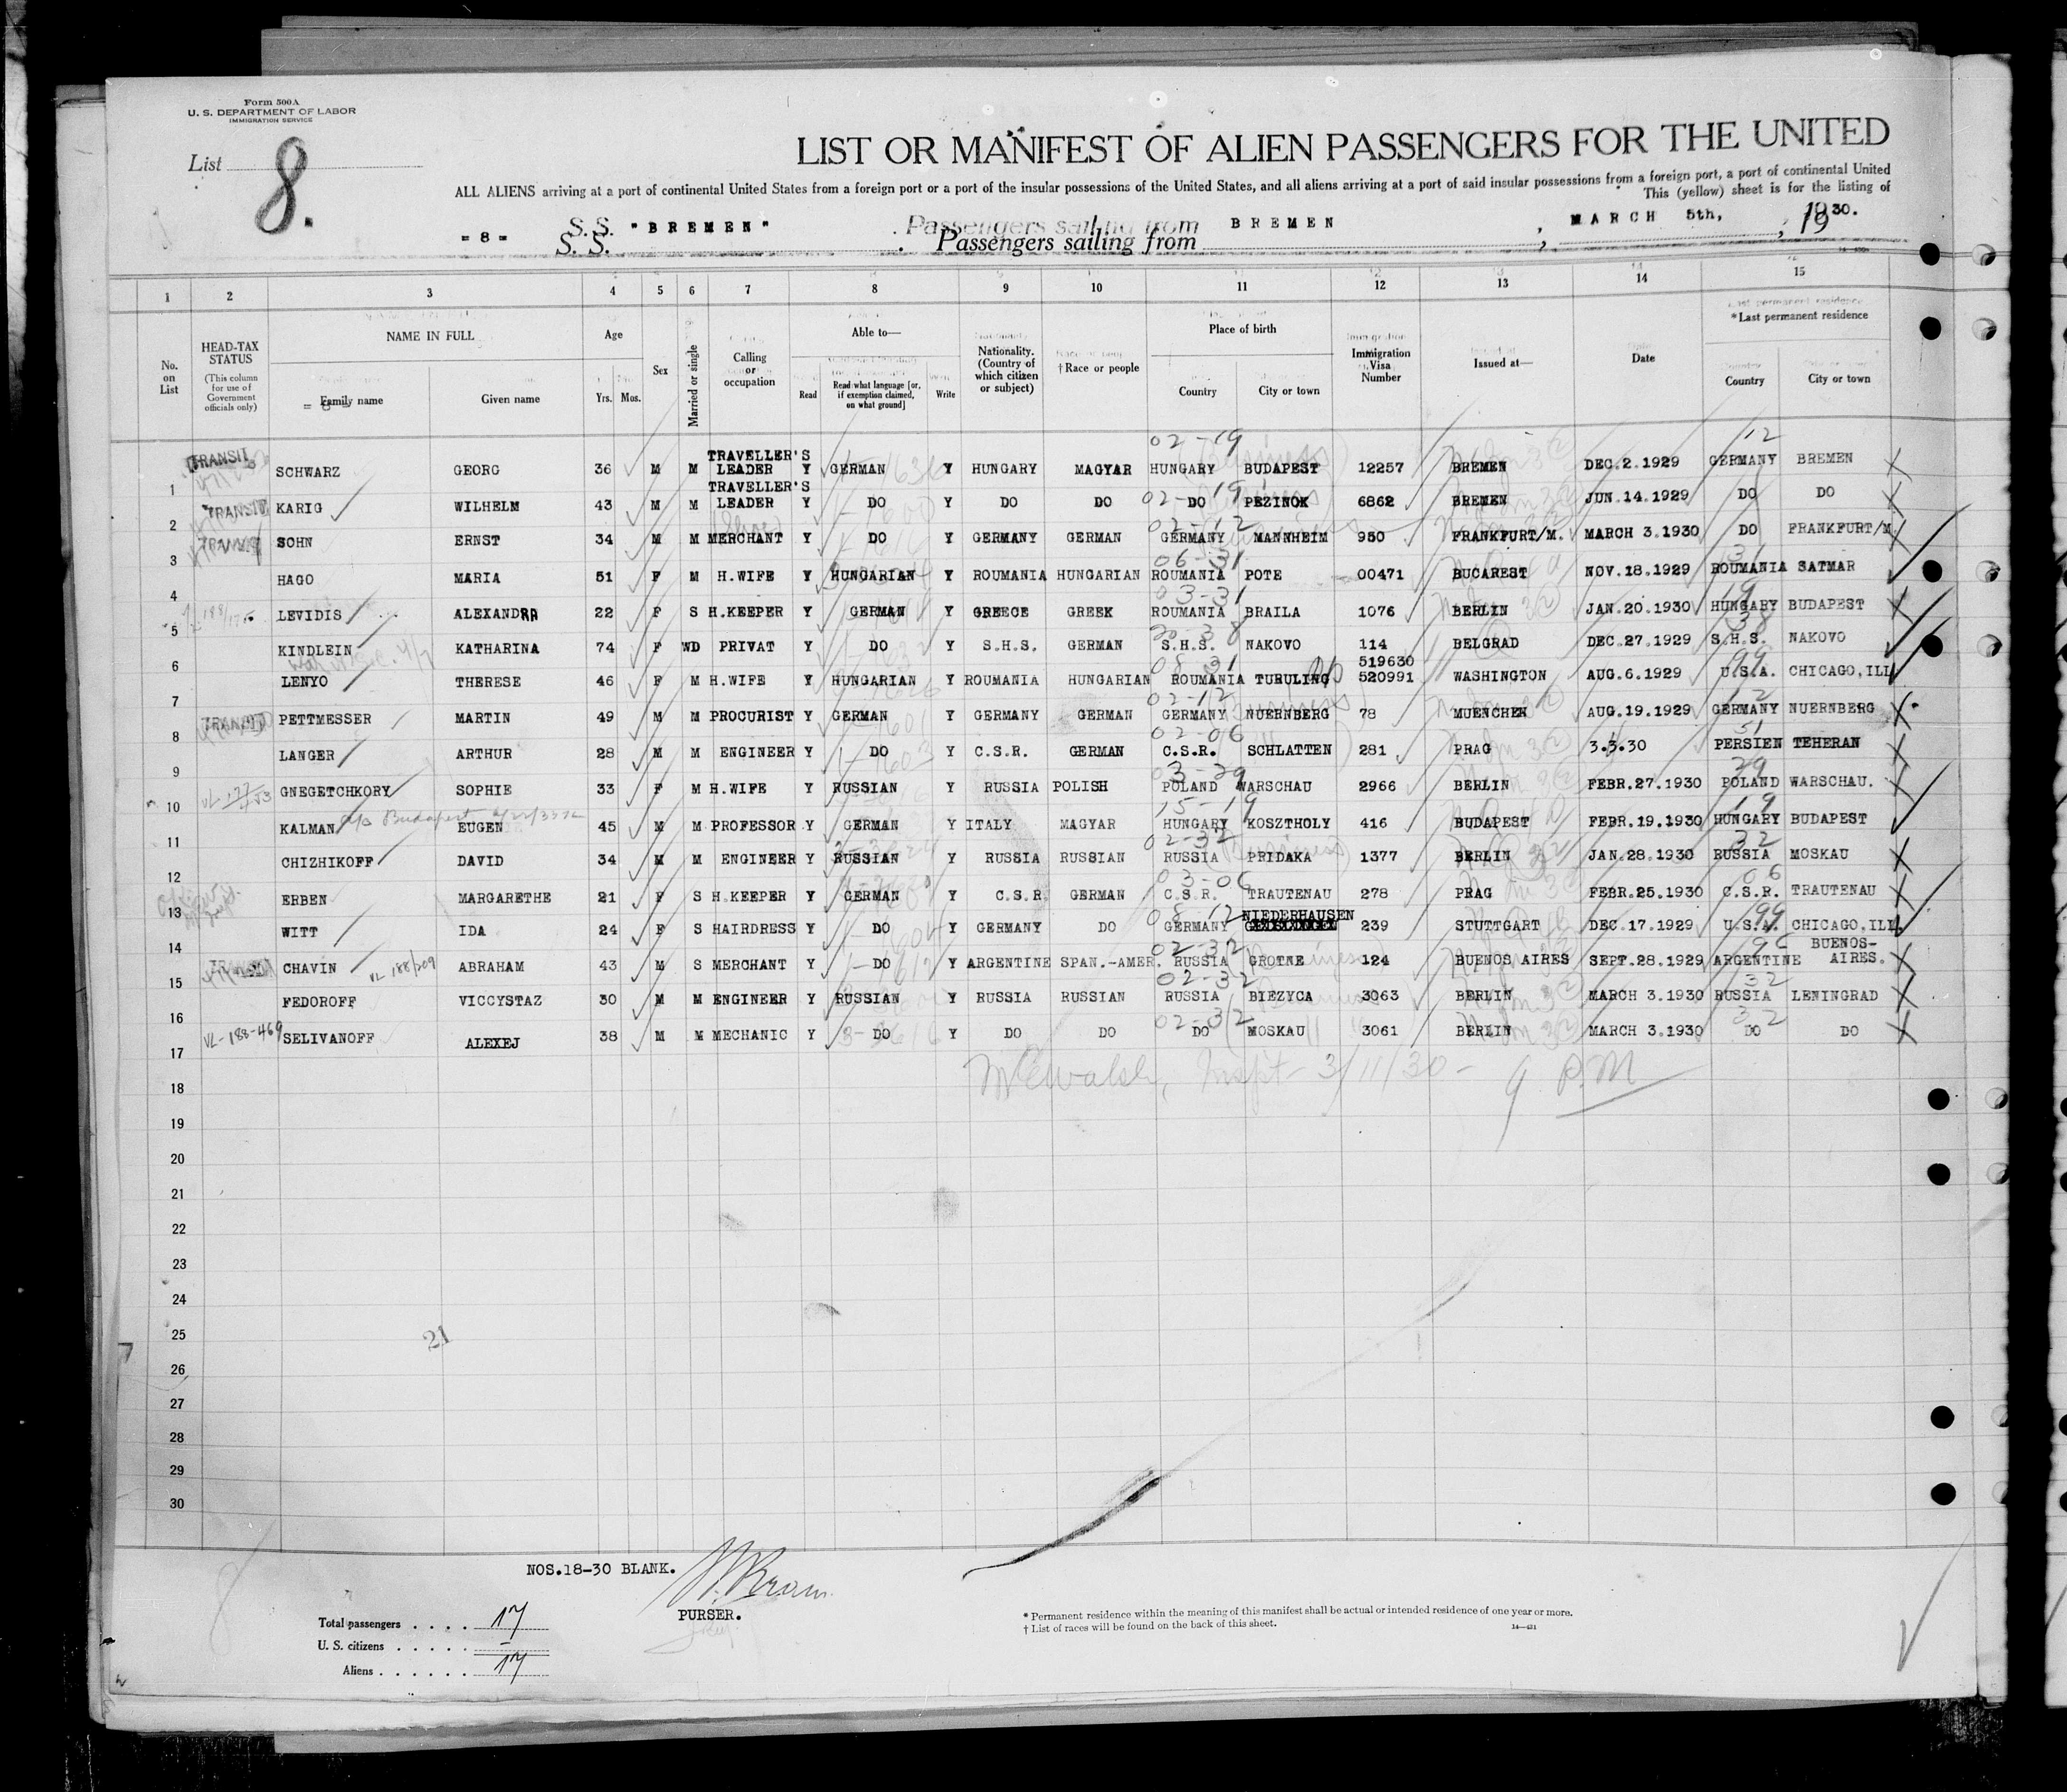 Form 500A
U. S. DEPARTMENT OF LABOR
IMMIGRATION SERVICE
List 8.
LIST OR MANIFEST OF ALIEN PASSENGERS FOR THE UNITED
ALL ALIENS arriving at a port of continental United States from a foreign port or a port of the insular possessions of the United States, and all aliens arriving at a port of said insular possessions from a foreign port, a port of continental United
This (yellow) sheet is for the listing of
= 8 = S. S. "BREMEN" Passengers sailing from BREMEN, MARCH 5th, 1930.
1 2 3 4 5 6 7 8 9 10 11 12 13 14 15
No. on List
HEAD-TAX STATUS (This column for use of Government officials only)
NAME IN FULL
Family name
Given name
Age
Yrs. Mos.
Sex
Married or single
Calling or occupation
Able to—
Read
Read what language [or, if exemption claimed, on what ground]
Write
Nationality. (Country of which citizen or subject)
†Race or people
Place of birth
Country
City or town
Immigration Visa Number
Issued at—
Date
*Last permanent residence
Country
City or town
1 TRANSIT SCHWARZ GEORG 36 M M TRAVELLER'S LEADER Y GERMAN Y HUNGARY MAGYAR 02-19 HUNGARY BUDAPEST 12257 BREMEN DEC.2.1929 12 GERMANY BREMEN
2 TRANSIT KARIG WILHELM 43 M M TRAVELLER'S LEADER Y DO Y DO DO 02-19 DO PEZINOK 6862 BREMEN JUN.14.1929 DO DO
3 TRANSIT SOHN ERNST 34 M M MERCHANT Y DO Y GERMANY GERMAN 02-12 GERMANY MANNHEIM 950 FRANKFURT/M. MARCH 3.1930 DO FRANKFURT/M.
4 HAGO MARIA 51 F M H.WIFE Y HUNGARIAN Y ROUMANIA HUNGARIAN 06-31 ROUMANIA POTE 00471 BUCAREST NOV.18.1929 31 ROUMANIA SATMAR
5 LEVIDIS ALEXANDRA 22 F S H.KEEPER Y GERMAN Y GREECE GREEK 03-31 ROUMANIA BRAILA 1076 BERLIN JAN.20.1930 19 HUNGARY BUDAPEST
6 KINDLEIN KATHARINA 74 F WD PRIVAT Y DO Y S.H.S. GERMAN S.H.S. NAKOVO 114 BELGRAD DEC.27.1929 38 S.H.S. NAKOVO
7 LENYO THERESE 46 F M H.WIFE Y HUNGARIAN Y ROUMANIA HUNGARIAN 08-31 ROUMANIA TURULING 519630 520991 WASHINGTON AUG.6.1929 99 U.S.A. CHICAGO,ILL
8 TRANSIT PETTMESSER MARTIN 49 M M PROCURIST Y GERMAN Y GERMANY GERMAN 02-12 GERMANY NUERNBERG 78 MUENCHEN AUG.19.1929 12 GERMANY NUERNBERG
9 LANGER ARTHUR 28 M M ENGINEER Y DO Y C.S.R. GERMAN 02-06 C.S.R. SCHLATTEN 281 PRAG 3.3.30 51 PERSIEN TEHERAN
10 GNEGETCHKORY SOPHIE 33 F M H.WIFE Y RUSSIAN Y RUSSIA POLISH 03-29 POLAND WARSCHAU 2966 BERLIN FEBR.27.1930 29 POLAND WARSCHAU.
11 KALMAN EUGEN 45 M M PROFESSOR Y GERMAN Y ITALY MAGYAR 15-19 HUNGARY KOSZTHOLY 416 BUDAPEST FEBR.19.1930 19 HUNGARY BUDAPEST
12 CHIZHIKOFF DAVID 34 M M ENGINEER Y RUSSIAN Y RUSSIA RUSSIAN 02-32 RUSSIA PRIDAKA 1377 BERLIN JAN.28.1930 32 RUSSIA MOSKAU
13 ERBEN MARGARETHE 21 F S H.KEEPER Y GERMAN Y C.S.R. GERMAN 03-06 C.S.R. TRAUTENAU 278 PRAG FEBR.25.1930 06 C.S.R. TRAUTENAU
14 WITT IDA 24 F S HAIRDRESS Y DO Y GERMANY DO 08-12 GERMANY NIEDERHAUSEN 239 STUTTGART DEC.17.1929 99 U.S.A. CHICAGO,ILL
15 CHAVIN VL 188/309 ABRAHAM 43 M S MERCHANT Y DO Y ARGENTINE SPAN.-AMER. 02-32 RUSSIA GROTNE 124 BUENOS AIRES SEPT.28.1929 ARGENTINE BUENOS-AIRES.
16 FEDOROFF VICCYSTAZ 30 M M ENGINEER Y RUSSIAN Y RUSSIA RUSSIAN 02-32 RUSSIA BIEZYCA 3063 BERLIN MARCH 3.1930 32 RUSSIA LENINGRAD
17 VL-188-469 SELIVANOFF ALEXEJ 38 M M MECHANIC Y DO Y DO DO 02-32 DO MOSKAU 3061 BERLIN MARCH 3.1930 32 DO DO
18 Walsh, Inspt - 3/11/30 - 9 P.M
19
20
21
22
23
24
25
21
26
27
28
29
30
NOS.18-30 BLANK.
PURSER.
Total passengers . . . . 17
U. S. citizens . . . . . —
Aliens . . . . . . 17
* Permanent residence within the meaning of this manifest shall be actual or intended residence of one year or more.
† List of races will be found on the back of this sheet.
14—431